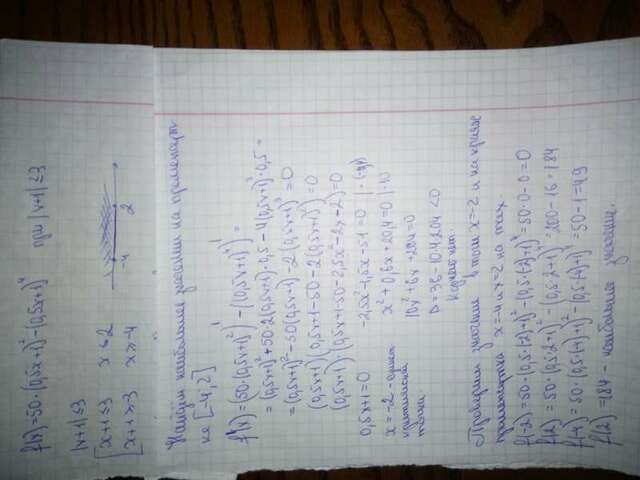 f(x)=50·(0,5x+1)²-(0,5x+1)⁴ при |x+1|≤3
|x+1|≤3
x+1≤3 x≤2
x+1≥-3 x≥-4
-4 2
Найдем наибольшее значение на промежут
ке [-4,2]
f'(x)=(50·(0,5x+1)²)'-((0,5x+1)⁴)'=
=(0,5x+1)²+50·2(0,5x+1)·0,5-4(0,5x+1)³·0,5=
=(0,5x+1)²-50(0,5x+1)-2(0,5x+1)³=0
(0,5x+1)(0,5x+1-50-2(0,5x+1)²)=0
(0,5x+1)·(0,5x+1-50-2,5x²-2x-2)=0
0,5x+1=0 -2,5x²-1,5x-51=0
x=-2 x²+0,6x+20,4=0 |·10
критическая 10x²+6x+204=0
точка. D=36-10·4·204<0
Корней нет.
Проверим значение в точк x=-2 и на краях
промежутка x=-4 и x=2 на
f(-2)=50·(0,5·(-2)+1)²-(0,5·(-2)+1)⁴=50·0-0=0
f(2)=50·(0,5·2+1)²-(0,5·2+1)⁴=200-16=184
f(-4)=50·(0,5·(-4)+1)²-(0,5·(-4)+1)⁴=50-1=49
f(2)=184 - наибольшее значение.